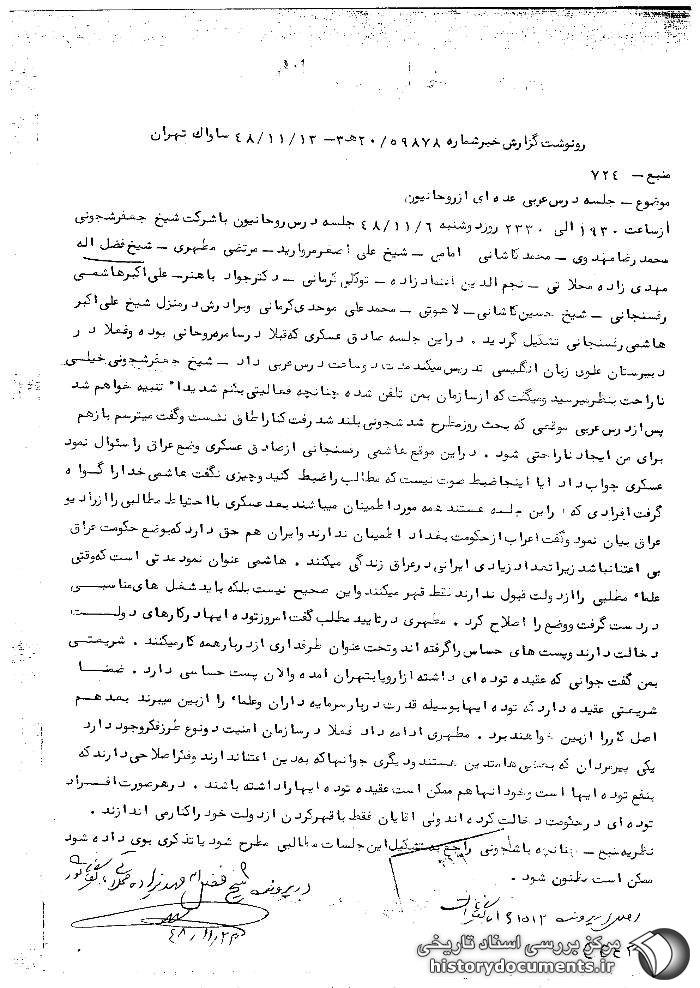 ۹۰۱
رونوشت گزارش خبر شماره ۲۰/۵۹۸۷۸ هـ ۳ – ۴۸/۱۱/۱۳ ساواك تهران
منبع – ۷۲٤
موضوع – جلسه درس عربی عده ای از روحانیون
از ساعت ۱۹۳۰ الی ۲۳۳۰ روز دوشنبه ۴۸/۱۱/۶ جلسه درس روحانیون با شرکت شیخ جعفر شجونی
محمد رضا مهدوی – محمد کاشانی امامی – شیخ علی اصغر مروارید – مرتضی مطهری – شیخ فضل اله
مهدی زاده محلاتی – نجم الدین اعتماد زاده – توکلی کرمانی – دکتر جواد باهنر – علی اکبر هاشمی
رفسنجانی – شیخ حسین کاشانی – لاهوتی – محمد علی موحدی کرمانی و برادرش در منزل شیخ علی اکبر
هاشمی رفسنجانی تشکیل گردید . در این جلسه صادق عسکری که قبلا در سامره روحانی بوده و فعلا در
دبیرستان علوی زبان انگلیسی تدریس میکند مدت دو ساعت درس عربی داد – شیخ جعفر شجونی خیلی
ناراحت بنظر میرسید و میگفت که از سازمان بمن تلفن شده چنانچه فعالیتی بکنم شدیدا" تنبیه خواهم شد
پس از درس عربی موقعی که بحث روز مطرح شد شجونی بلند شد رفت کنار اطاق نشست و گفت میترسم باز هم
برای من ایجاد ناراحتی شود . در این موقع هاشمی رفسنجانی از صادق عسکری وضع عراق را سئوال نمود
عسکری جواب داد ایا اینجا ضبط صوت نیست که مطالب را ضبط کنید و چیزی نگفت هاشمی خدا را گواه
گرفت افرادی که در این جلسه هستند همه مورد اطمینان میباشند بعد عسکری با احتیاط مطالبی را از رادیو
عراق بیان نمود و گفت اعراب از حکومت بغداد اطمینان ندارند و ایران هم حق دارد که بوضع حکومت عراق
بی اعتنا نباشد زیرا تعداد زیادی ایرانی در عراق زندگی میکنند . هاشمی عنوان نمود مدتی است که وقتی
علماء مطلبی را از دولت قبول ندارند فقط قهر میکنند و این صحیح نیست بلکه باید شغل های مناسبی
در دست گرفت و وضع را اصلاح کرد . مطهری در تایید مطلب گفت امروز توده ایها در کارهای دولت
دخالت دارند و پست های حساس را گرفته اند و تحت عنوان طرفداری از دربار همه کار میکنند . شریعتی
بمن گفت جوانی که عقیده توده ای داشته از اروپا بتهران امده و الان پست حساسی دارد . ضمنا
شریعتی عقیده دارد که توده ایها بوسیله قدرت دربار سرمایه داران و علماء را از بین میبرند بعد هم
اصل کار را از بین خواهند برد . مطهری ادامه داد فعلا در سازمان امنیت دو نوع طرز فکر وجود دارد
یکی پیرمردان که بعضی ها متدین هستند و دیگری جوانها که به دین اعتنا ندارند و فکر اصلاحی دارند که
بنفع توده ایها است و خود انها هم ممکن است عقیده توده ایها را داشته باشند . در هر صورت افراد
توده ای در حکومت دخالت کرده اند ولی اقایان فقط با قهر کردن از دولت خود را کنار می اندازند .
نظریه منبع – چنانچه با شجونی راجع به تشکیل این جلسات مطالبی مطرح شود یا تذکری بوی داده شود
ممکن است مظنون شود .
در پرونده شیخ فضل اله مهدیزاده محلاتی
اصل در پرونده ۱۵۱۲
۴۸/۱۱/۲۰
مرکز بررسی اسناد تاریخی
historydocuments.ir